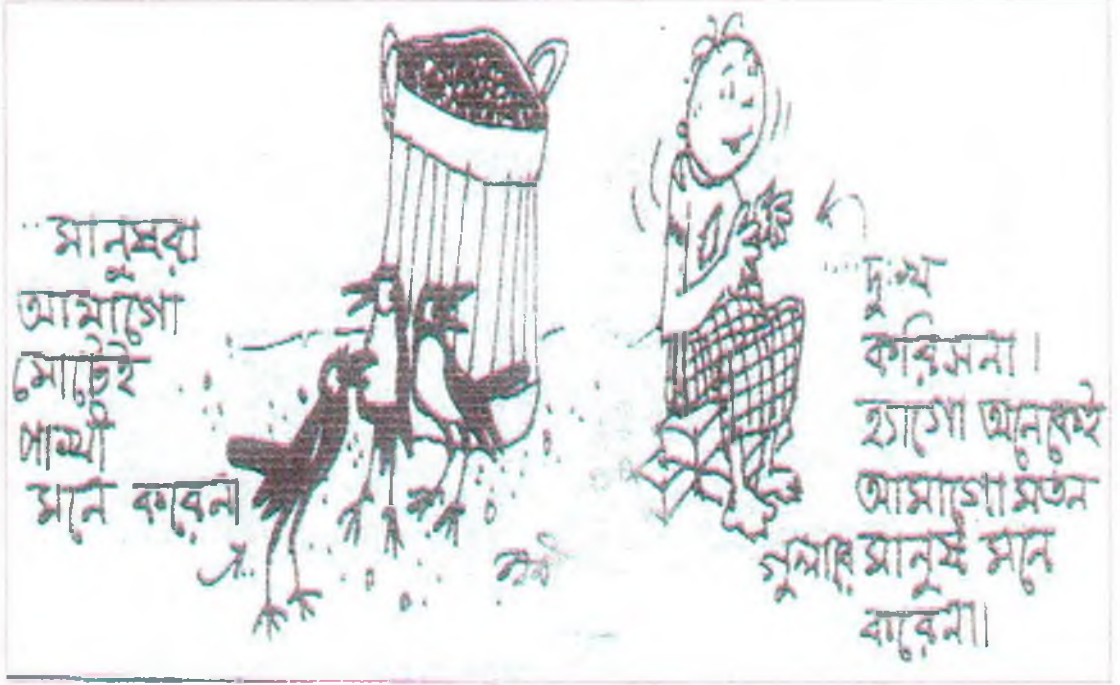 মানুষরা
আমাগো
মোটেই
পাখী
মনে করেনা
দুঃখ
করিসনা।
হ্যাগো অনেকেই
আমাগো মতন
গুলারে মানুষ মনে
করেনা।